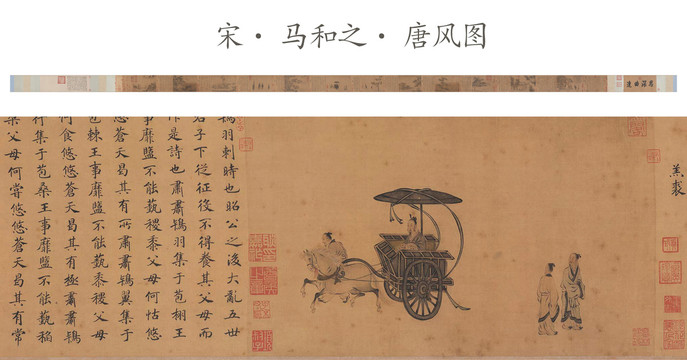 宋· 马和之· 唐风图
羔裘
鴇羽刺時也昭公之後大亂五世
君子下從征役不得養其父母而
作是詩也肅肅鴇羽集于苞栩王
事靡盬不能蓺稷黍父母何怙悠
悠蒼天曷其有所肅肅鴇翼集于
苞棘王事靡盬不能蓺黍稷父母
何食悠悠蒼天曷其有極肅肅鴇
行集于苞桑王事靡盬不能蓺稻
粱父母何嘗悠悠蒼天曷其有常